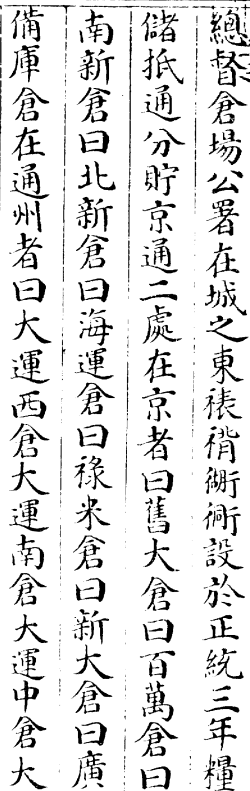 總督倉場公署在城之東裱褙衚衕設於正統三年糧
儲抵通分貯京通二處在京者曰舊大倉曰百萬倉曰
南新倉曰北新倉曰海運倉曰祿米倉曰新大倉曰廣
備庫倉在通州者曰大運西倉大運南倉大運中倉大